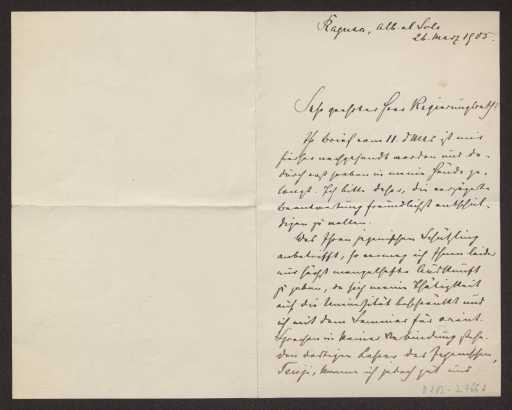 Ragusa, Alb. al Sole
26. März 1905.
Sehr geehrter Herr Regierungsrath!
Ihr Brief vom 11. d Mts ist mir
hierher nachgesandt worden und da-
durch erst soeben in meine Hände ge-
langt. Ich bitte daher, die verzögerte
Beantwortung freundlichst entschul-
digen zu wollen.
Was Ihren japanischen Schützling
anbetrifft, so vermag ich Ihnen leider
nur höchst mangelhafte Auskunft
zu geben, da sich meine Thätigkeit
auf die Universität beschränkt und
ich mit dem Seminar für orient.
Sprachen in keiner Verbindung stehe.
Den dortigen Lehrer des Japanischen,
Senji, kenne ich jedoch gut und